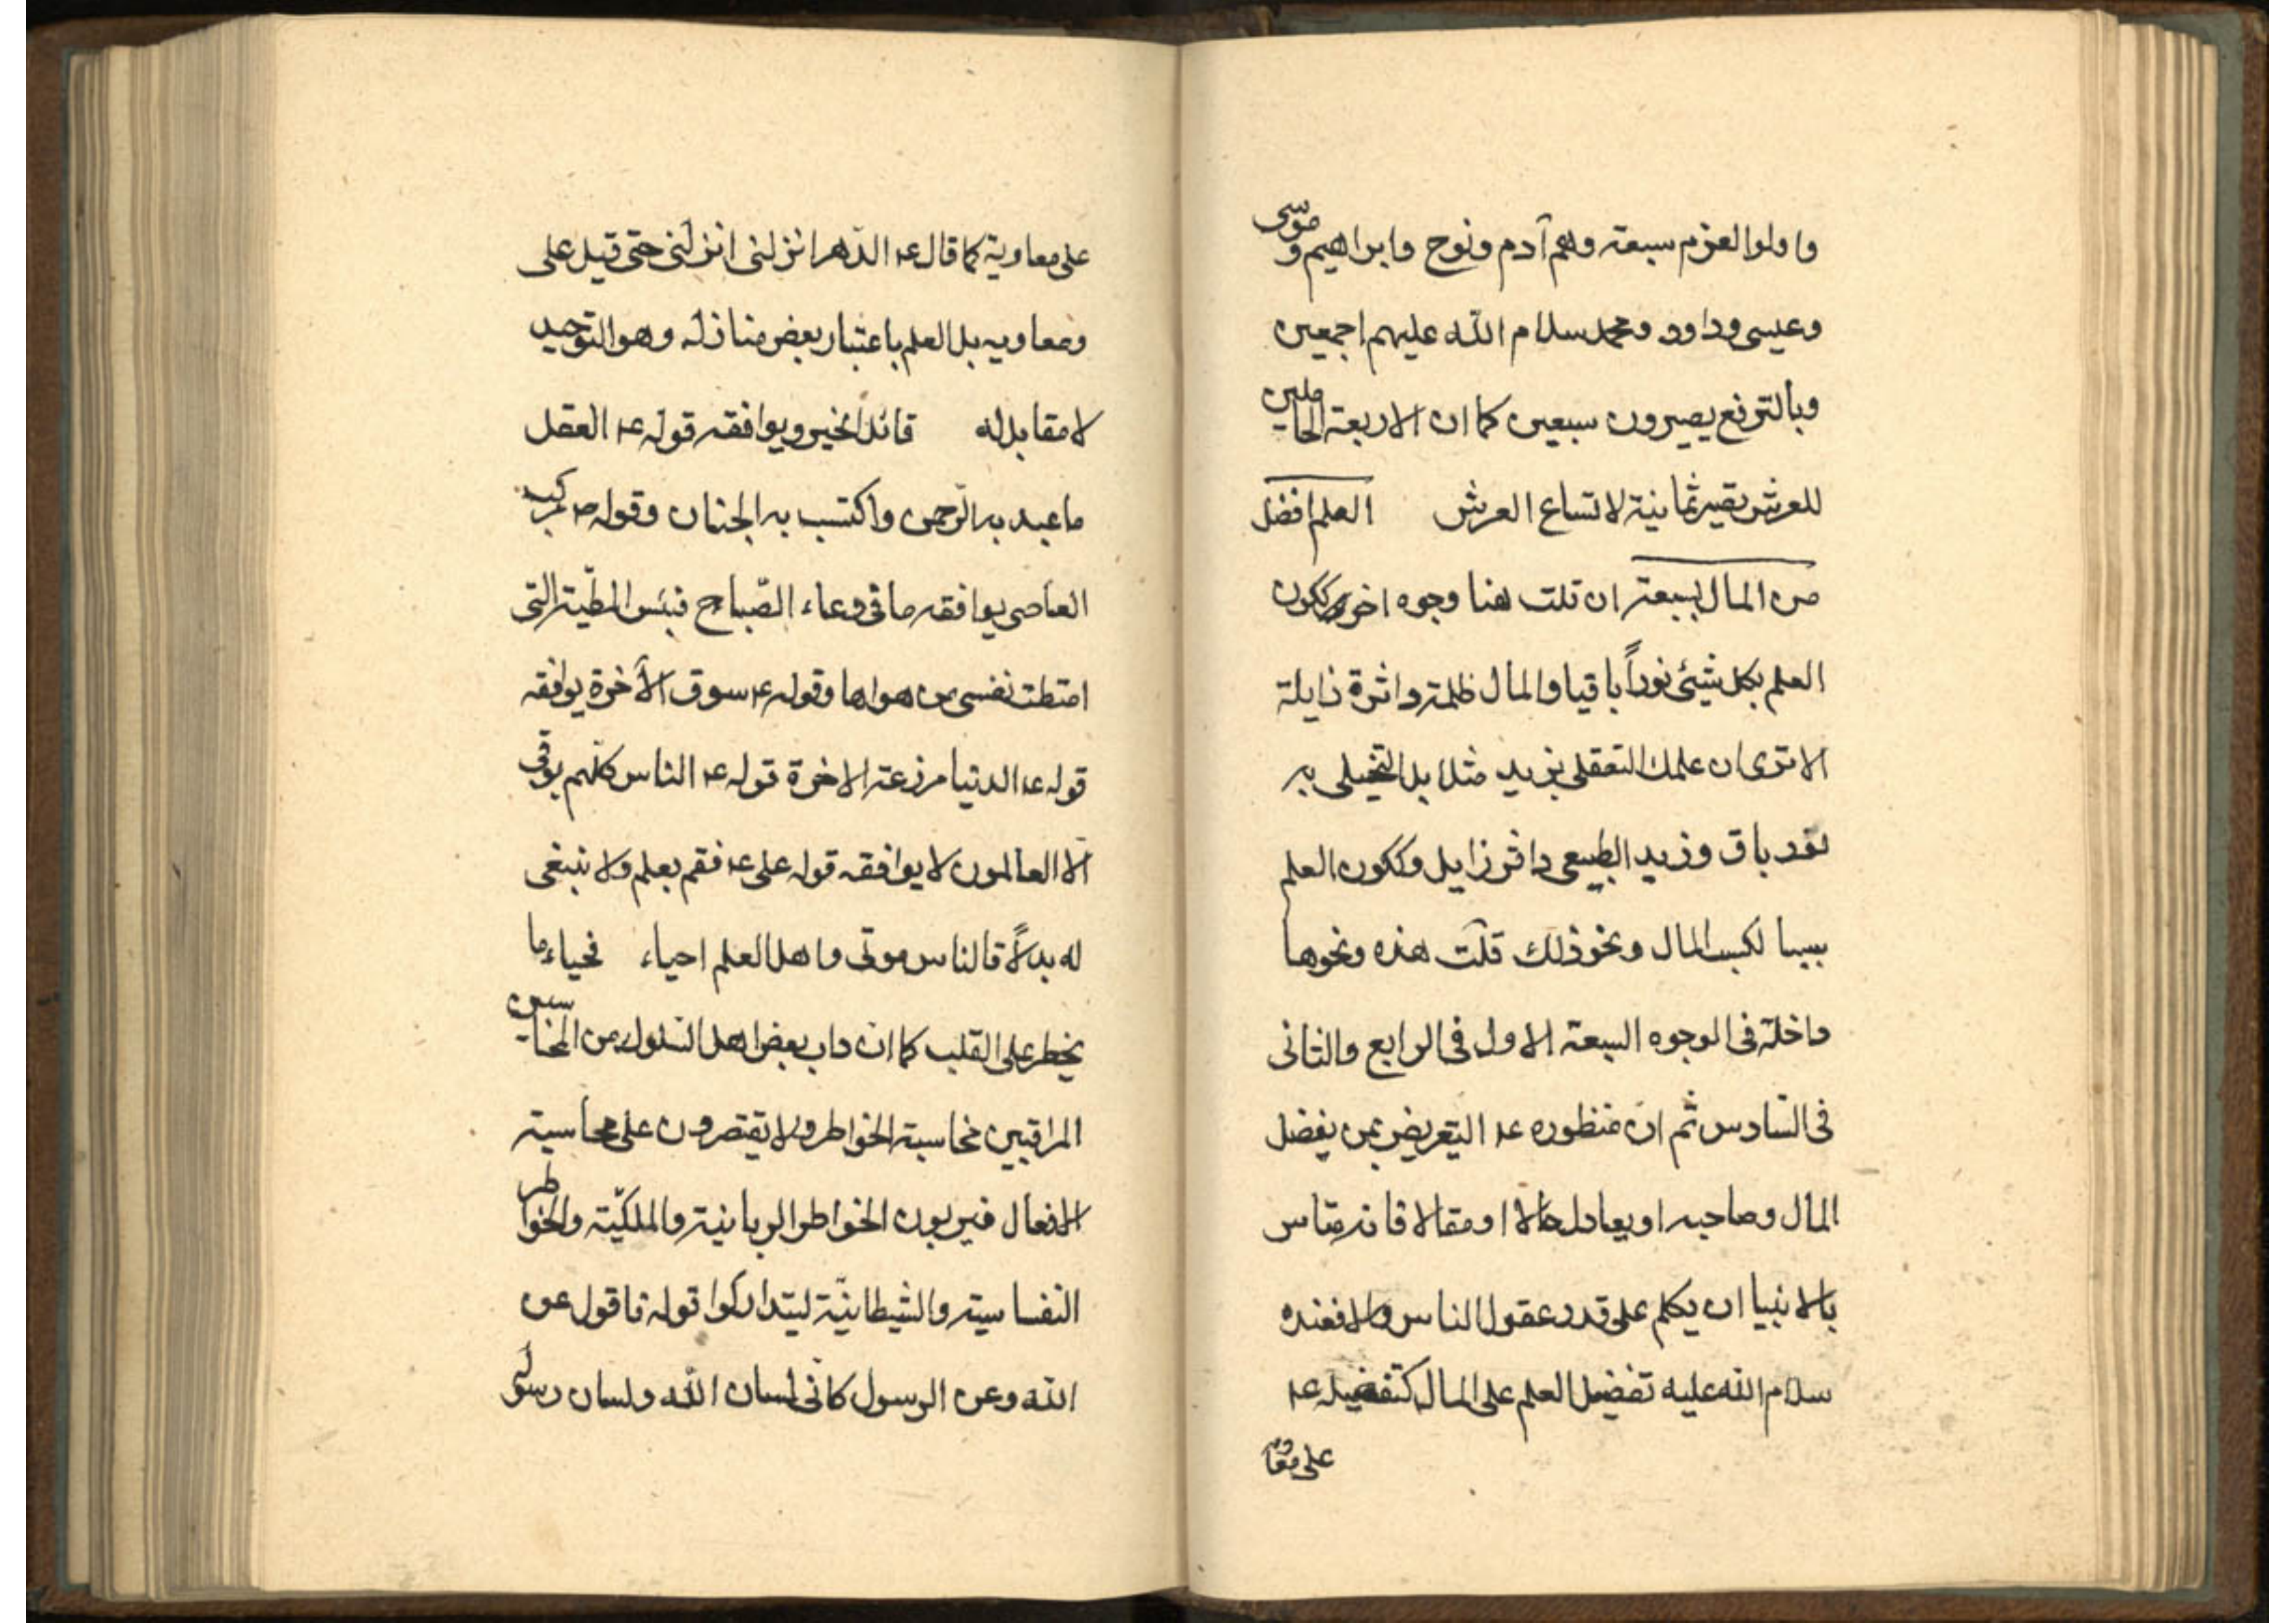 واولوا العزم سبعة وهم آدم ونوح وابراهيم وموسى
وعيسى وداود ومحمد سلام الله عليهم اجمعين
وبالترفع يصيرون سبعين كما ان الاربعة الحاملين
للعرش يصير ثمانية لاتساع العرش العلم افضل
من المال بسبعة ان قلت هنا وجوه اخر ككون
العلم بكل شيئ نوراً باقيا والمال ظلمة داثرة زايلة
الا ترى ان علمك التعقلى بزيد مثلا بل التخيلى به
نقد باق وزيد الطبيعى داثر زايل وككون العلم
سببا لكسب المال ونحو ذلك قلت هذه ونحوها
داخلة فى الوجوه السبعة الاول فى الرابع والثانى
فى السادس ثم ان منظوره عه التعريض بمن يفضل
المال وصاحبه او يعادل حالا او مقالا فانه متاس
بالانبيا ان يكلم على قدر عقول الناس والا فعنده
سلام الله عليه تفضيل العلم على المال كتفضيله عه
على معاو
على معاوية كما قال عه الدهر انزلنى انزلنى حتى قيل على
ومعاويه بل العلم باعتبار بعض منازله وهو التوحيد
لا مقابل له قائد الخير ويوافقه قوله عه العقل
ما عبد به الرحمن واكتسب به الجنان وقوله ص مركب
العاصى يوافقه ما فى دعاء الصباح فبئس المطية التى
امتطت نفسى من هواها وقوله عه سوق الآخرة يوافقه
قوله عه الدنيا مزرعة الاخرة قوله عه الناس كلهم موتى
الا العالمون لا يوافقه قوله على عه فقم بعلم ولا تبتغى
له بدلاً فالناس موتى واهل العلم احياء فحياء ما
يخطر على القلب كما ان داب بعض اهل السلوك من المحاسبين
المراقبين محاسبة الخواطر ولا يقتصرون على محاسبة
الافعال فيربون الخواطر الربانية والملكية والخواطر
النفسانية والشيطانية ليتداركوا قوله فاقول عن
الله وعن الرسول كانى لسان الله ولسان رسوله